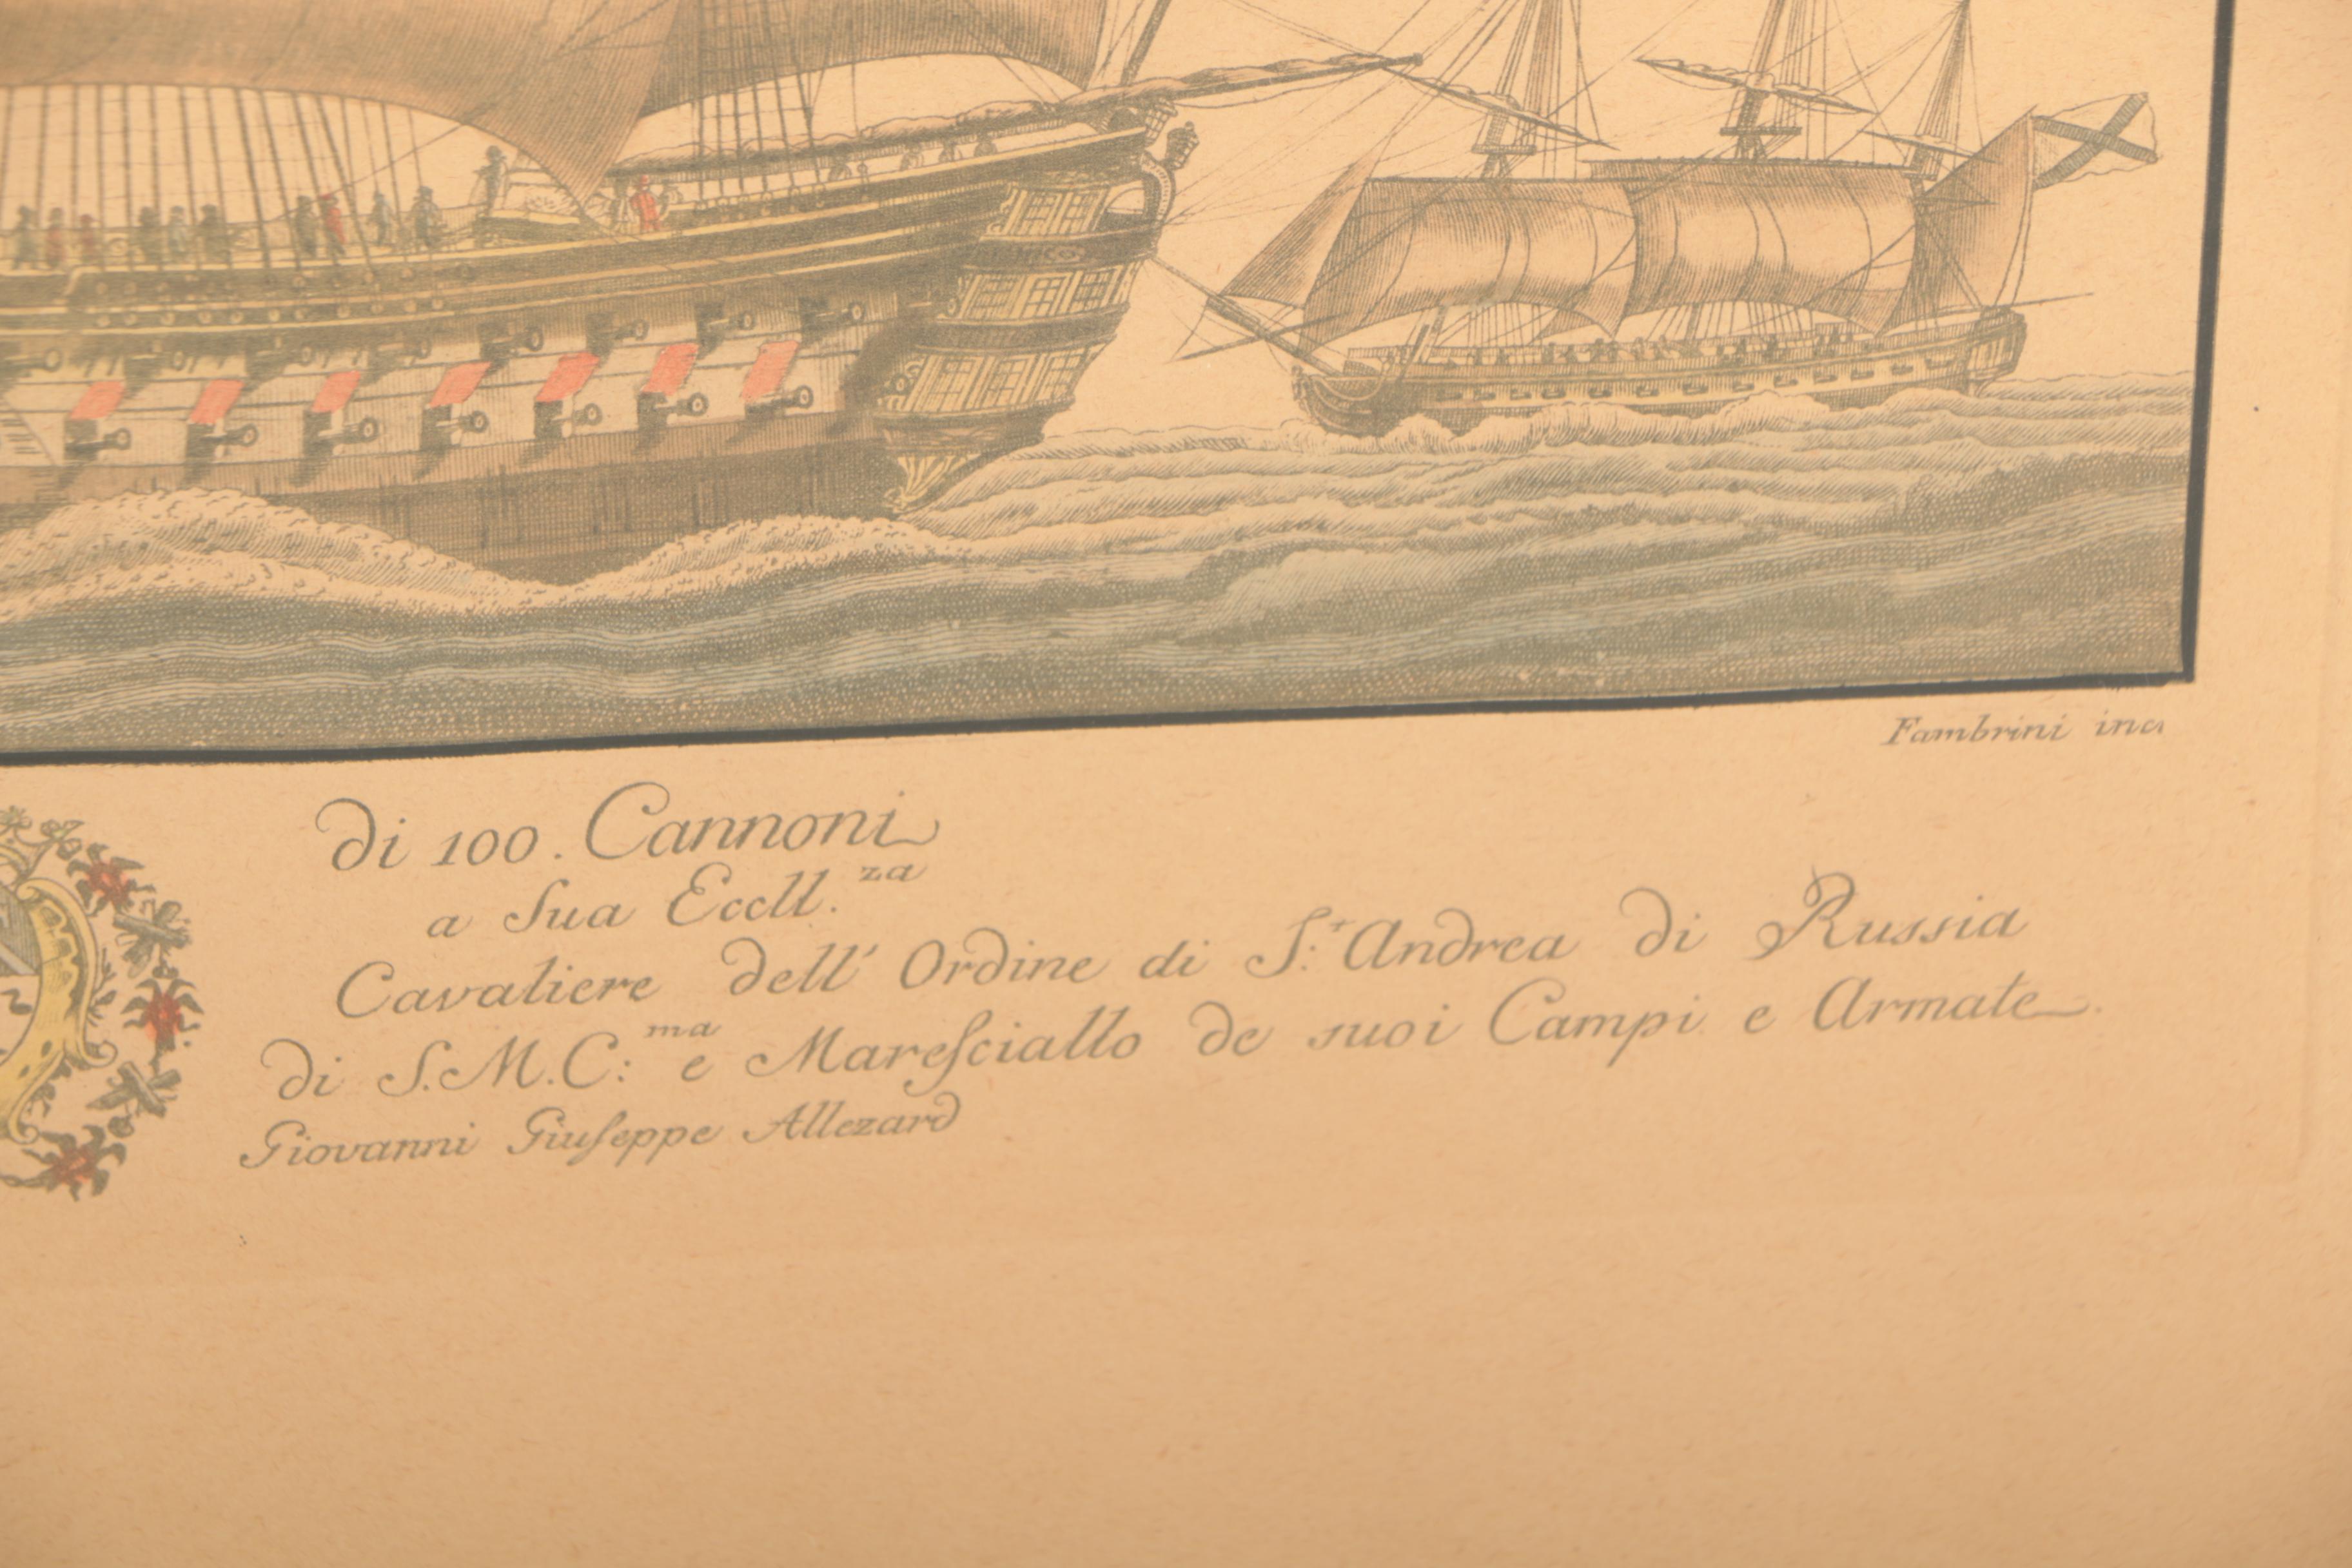 Fambrini inc
di 100. Cannoni
a Sua Eccll.za
Cavaliere dell' Ordine di S:t Andrea di Russia
di S.M.C:ma e Mareſciallo de suoi Campi e Armate.
Giovanni Giuſeppe Allezard